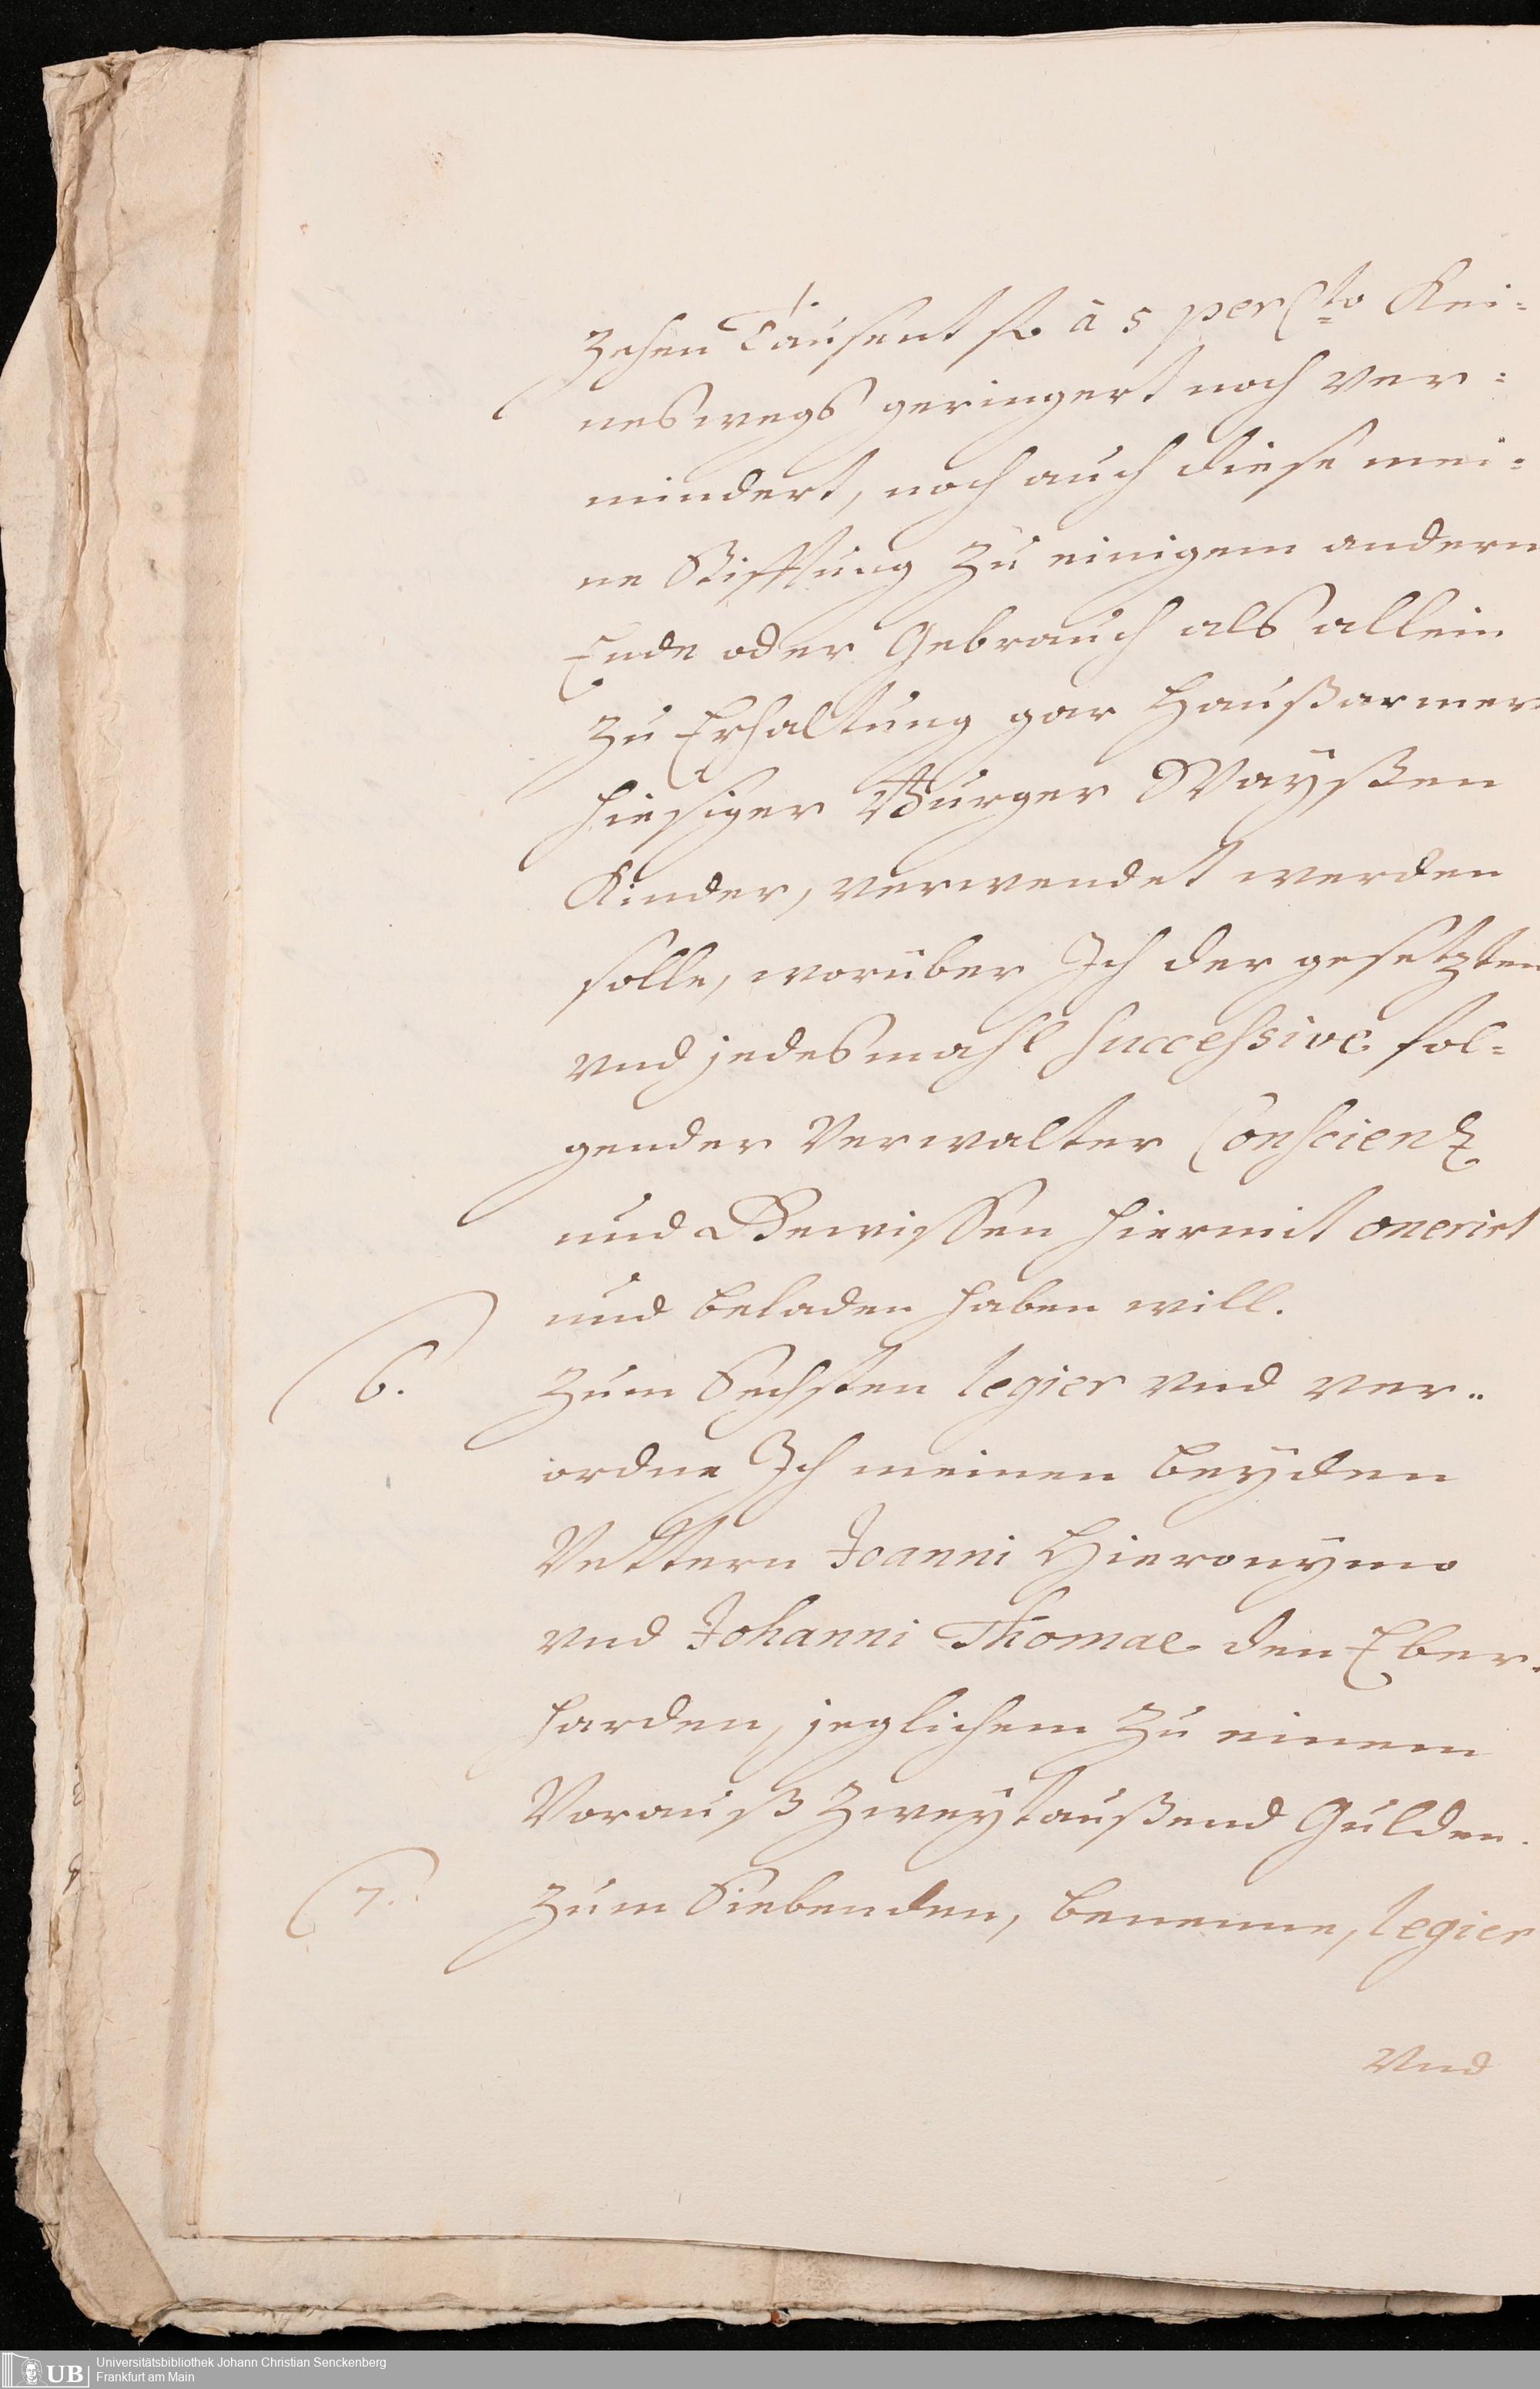 Zehen Tausent fl. à 5 per Cto Kei=
neswegs geringert noch ver=
mindert, noch auch diese mei=
ne Stifftung zu einigem andern
Ende oder Gebrauch als allein
zu Erhaltung gar Haußarmer
hiesiger Burger Wayßen
Kinder, verwendet werden
solle, worüber Ich der gesetzten
vnd jedesmahl successive fol=
gender Verwalter Conscientz
und Gewissen hiermit onerirt
und beladen haben will.
6. Zum Sechsten legier vnd ver=
ordne Ich meinen beyden
Vettern Joanni Hieronymo
vnd Johanni Thomae den Eber=
harden, jeglichem zu einem
Vorauß Zweytaußend Gulden.
7. Zum Siebenden, benenne, legier
Vnd
UB Universitätsbibliothek Johann Christian Senckenberg
Frankfurt am Main